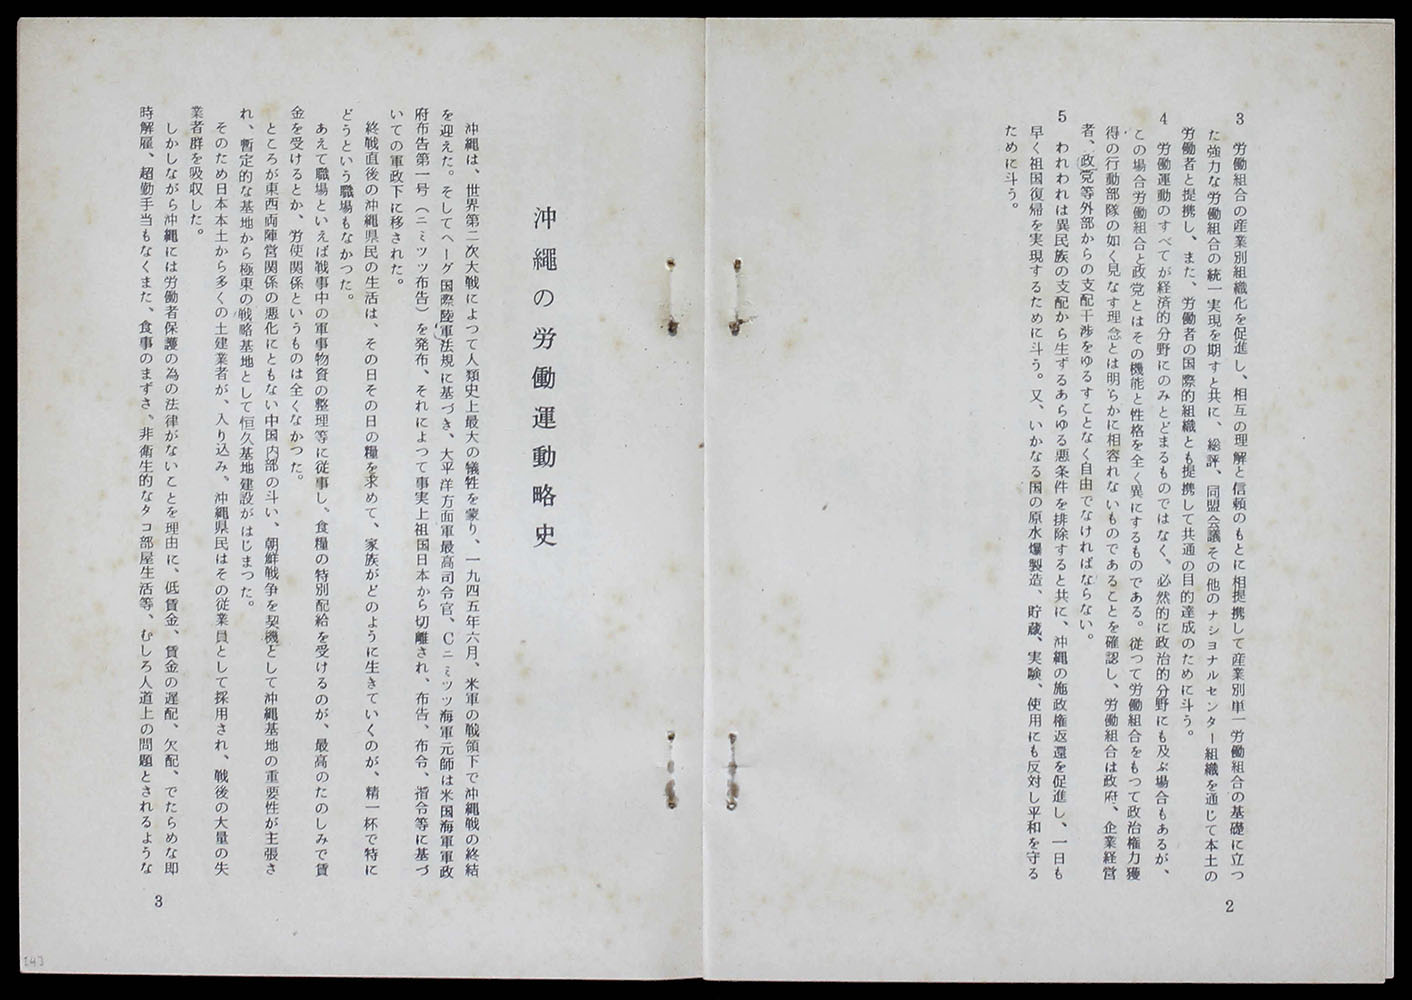 3　労働組合の産業別組織化を促進し、相互の理解と信頼のもとに相提携して産業別単一労働組合の基礎に立つ
た強力な労働組合の統一実現を期すと共に、総評、同盟会議その他のナショナルセンター組織を通じて本土の
労働者と提携し、また、労働者の国際的組織とも提携して共通の目的達成のために斗う。
4　労働運動のすべてが経済的分野にのみとどまるものではなく、必然的に政治的分野にも及ぶ場合もあるが、
この場合労働組合と政党とはその機能と性格を全く異にするものである。従つて労働組合をもつて政治権力獲
得の行動部隊の如く見なす理念とは明らかに相容れないものであることを確認し、労働組合は政府、企業経営
者、政党等外部からの支配干渉をゆるすことなく自由でなければならない。
5　われわれは異民族の支配から生ずるあらゆる悪条件を排除すると共に、沖縄の施政権返還を促進し、一日も
早く祖国復帰を実現するために斗う。又、いかなる国の原水爆製造、貯蔵、実験、使用にも反対し平和を守る
ために斗う。
2
沖繩の労働運動略史
沖縄は、世界第二次大戦によつて人類史上最大の犠牲を蒙り、一九四五年六月、米軍の戦領下で沖縄戦の終結
を迎えた。そしてヘーグ国際陸軍法規に基づき、大平洋方面軍最高司令官、Cニミッツ海軍元師は米国海軍軍政
府布告第一号（ニミッツ布告）を発布、それによつて事実上祖国日本から切離され、布告、布令、指令等に基づ
いての軍政下に移された。
終戦直後の沖縄県民の生活は、その日その日の糧を求めて、家族がどのように生きていくのが、精一杯で特に
どうという職場もなかつた。
あえて職場といえば戦事中の軍事物資の整理等に従事し、食糧の特別配給を受けるのが、最高のたのしみで賃
金を受けるとか、労使関係というものは全くなかつた。
ところが東西両陣営関係の悪化にともない中国内部の斗い、朝鮮戦争を契機として沖縄基地の重要性が主張さ
れ、暫定的な基地から極東の戦略基地として恒久基地建設がはじまつた。
そのため日本本土から多くの土建業者が、入り込み、沖縄県民はその従業員として採用され、戦後の大量の失
業者群を吸収した。
しかしながら沖縄には労働者保護の為の法律がないことを理由に、低賃金、賃金の遅配、欠配、でたらめな即
時解雇、超勤手当もなくまた、食事のまずさ、非衛生的なタコ部屋生活等、むしろ人道上の問題とされるような
3
243